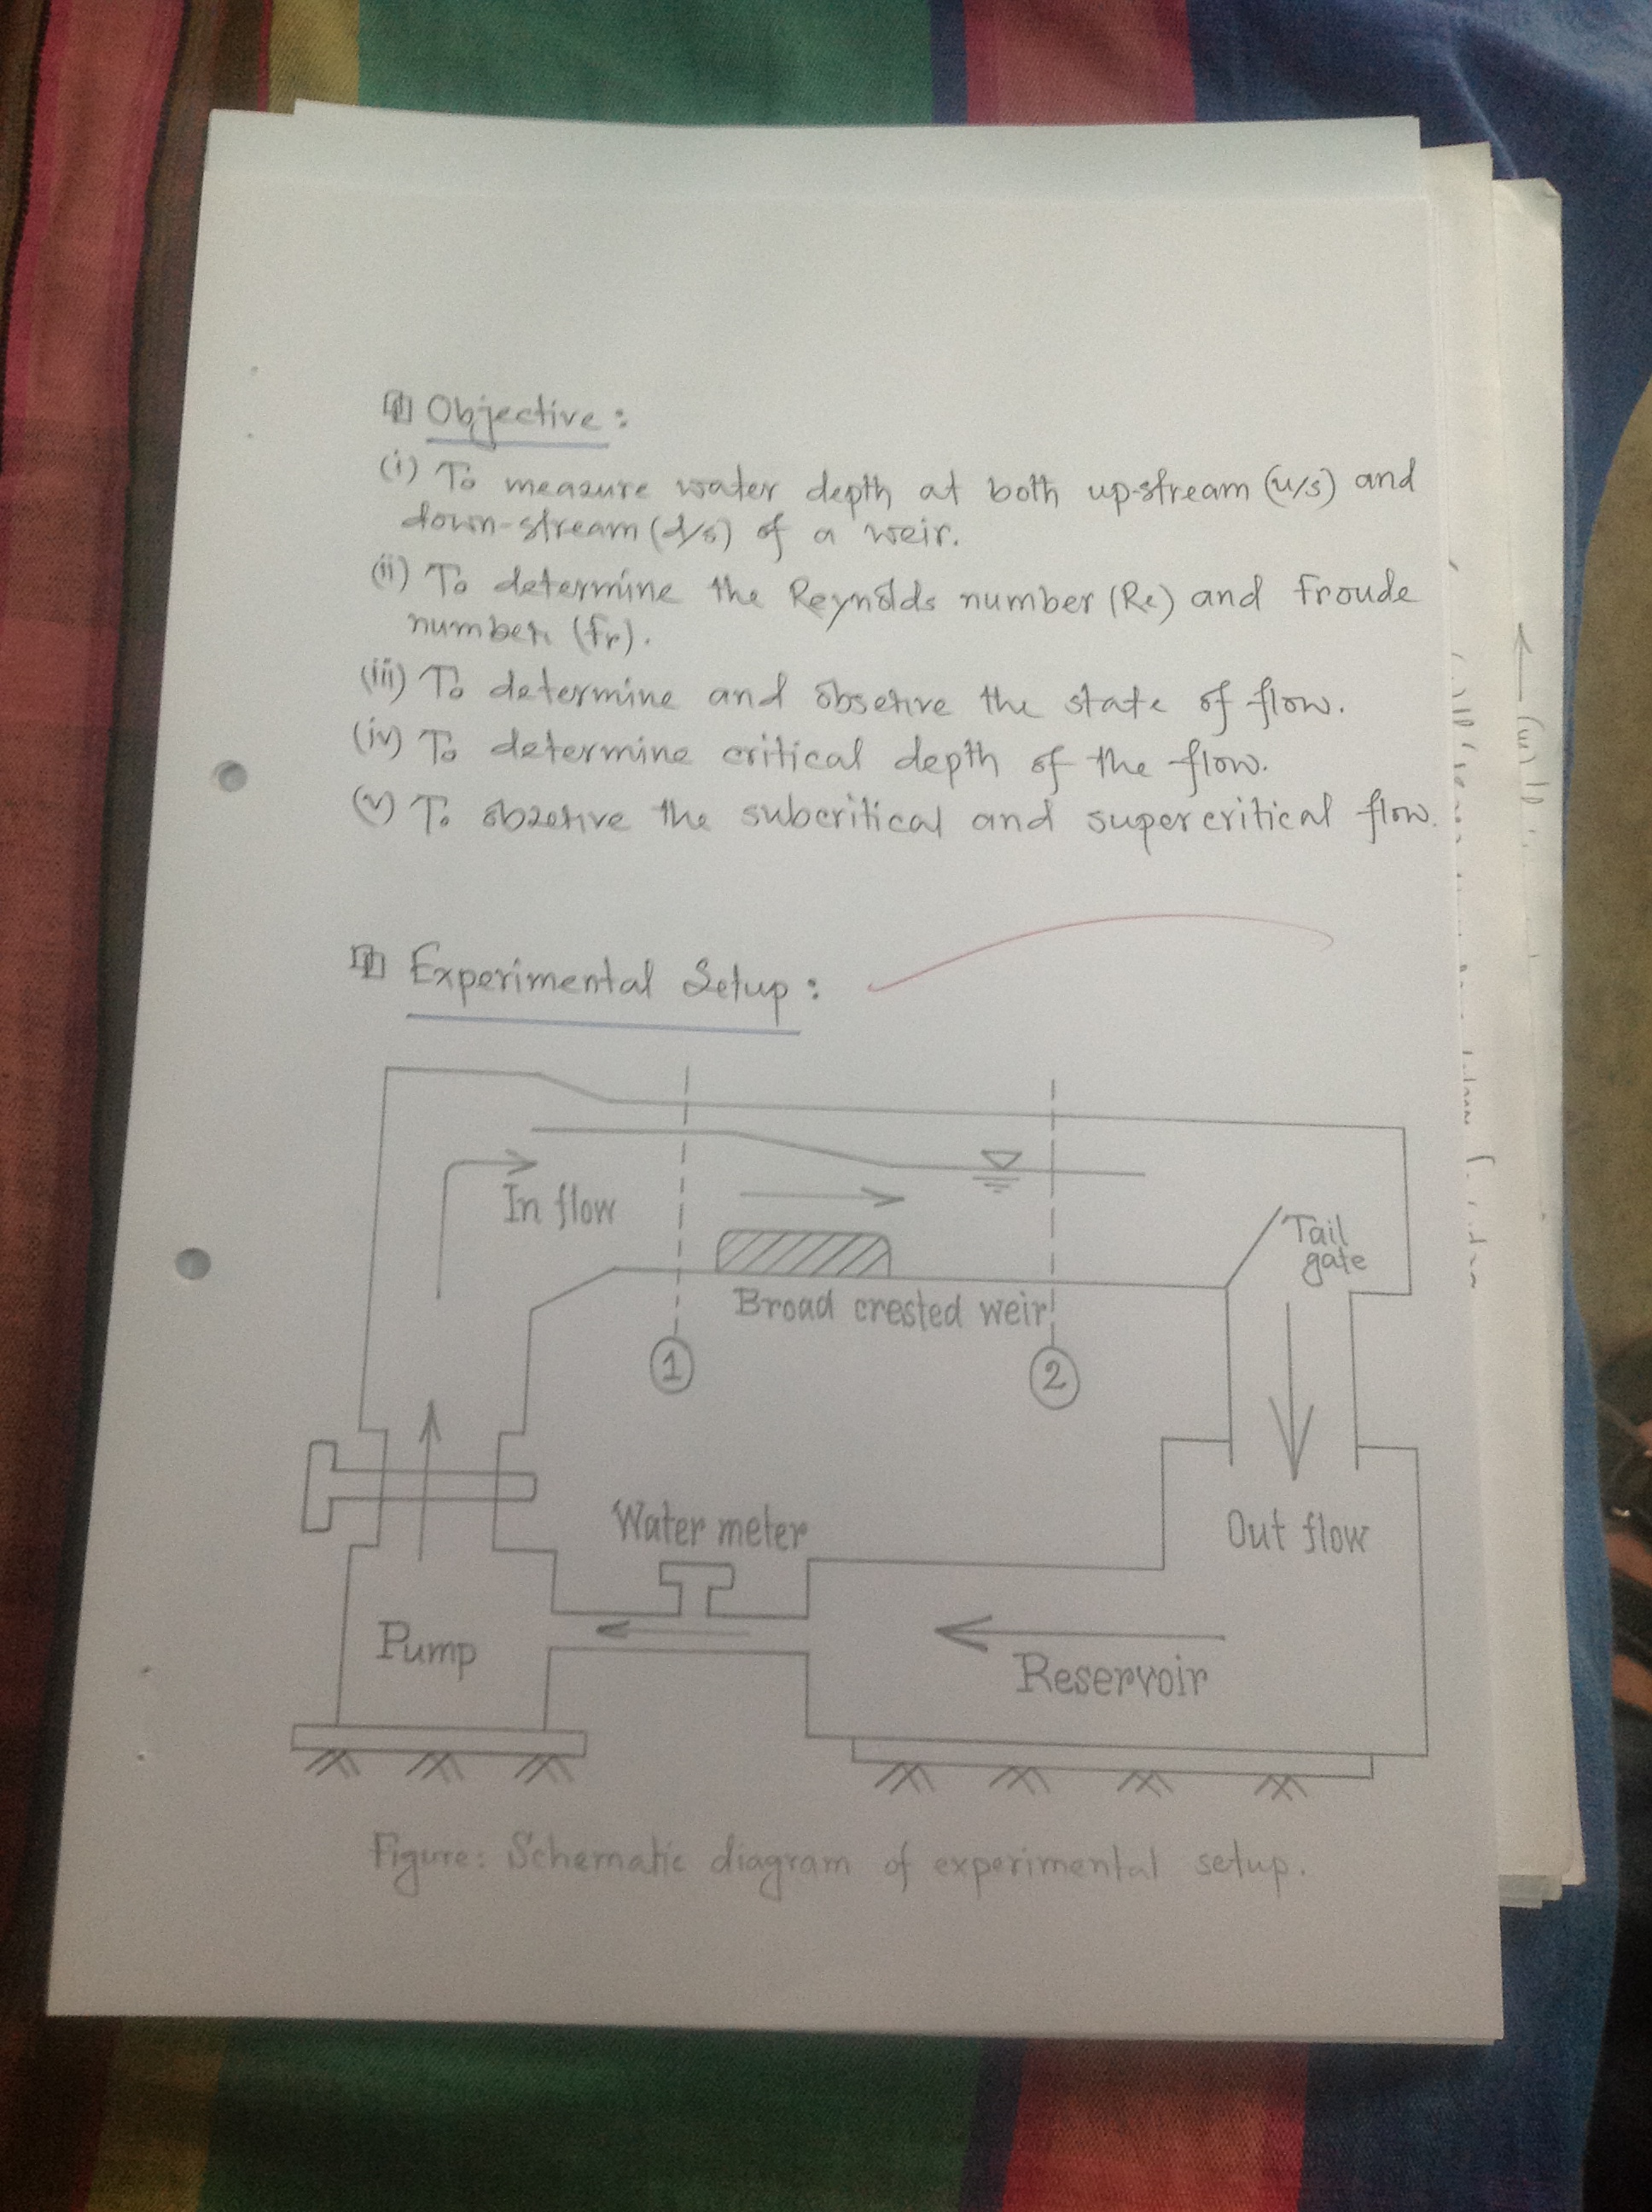 Objective:
(i) To measure water depth at both up-stream (u/s) and
down-stream (d/s) of a weir.
(ii) To determine the Reynolds number (Re) and Froude
number (Fr).
(iii) To determine and observe the state of flow.
(iv) To determine critical depth of the flow.
(v) To observe the subcritical and supercritical flow.
Experimental Setup:
In flow
Tail
gate
Broad crested weir
1
2
Water meter
Out flow
Pump
Reservoir
Figure: Schematic diagram of experimental setup.